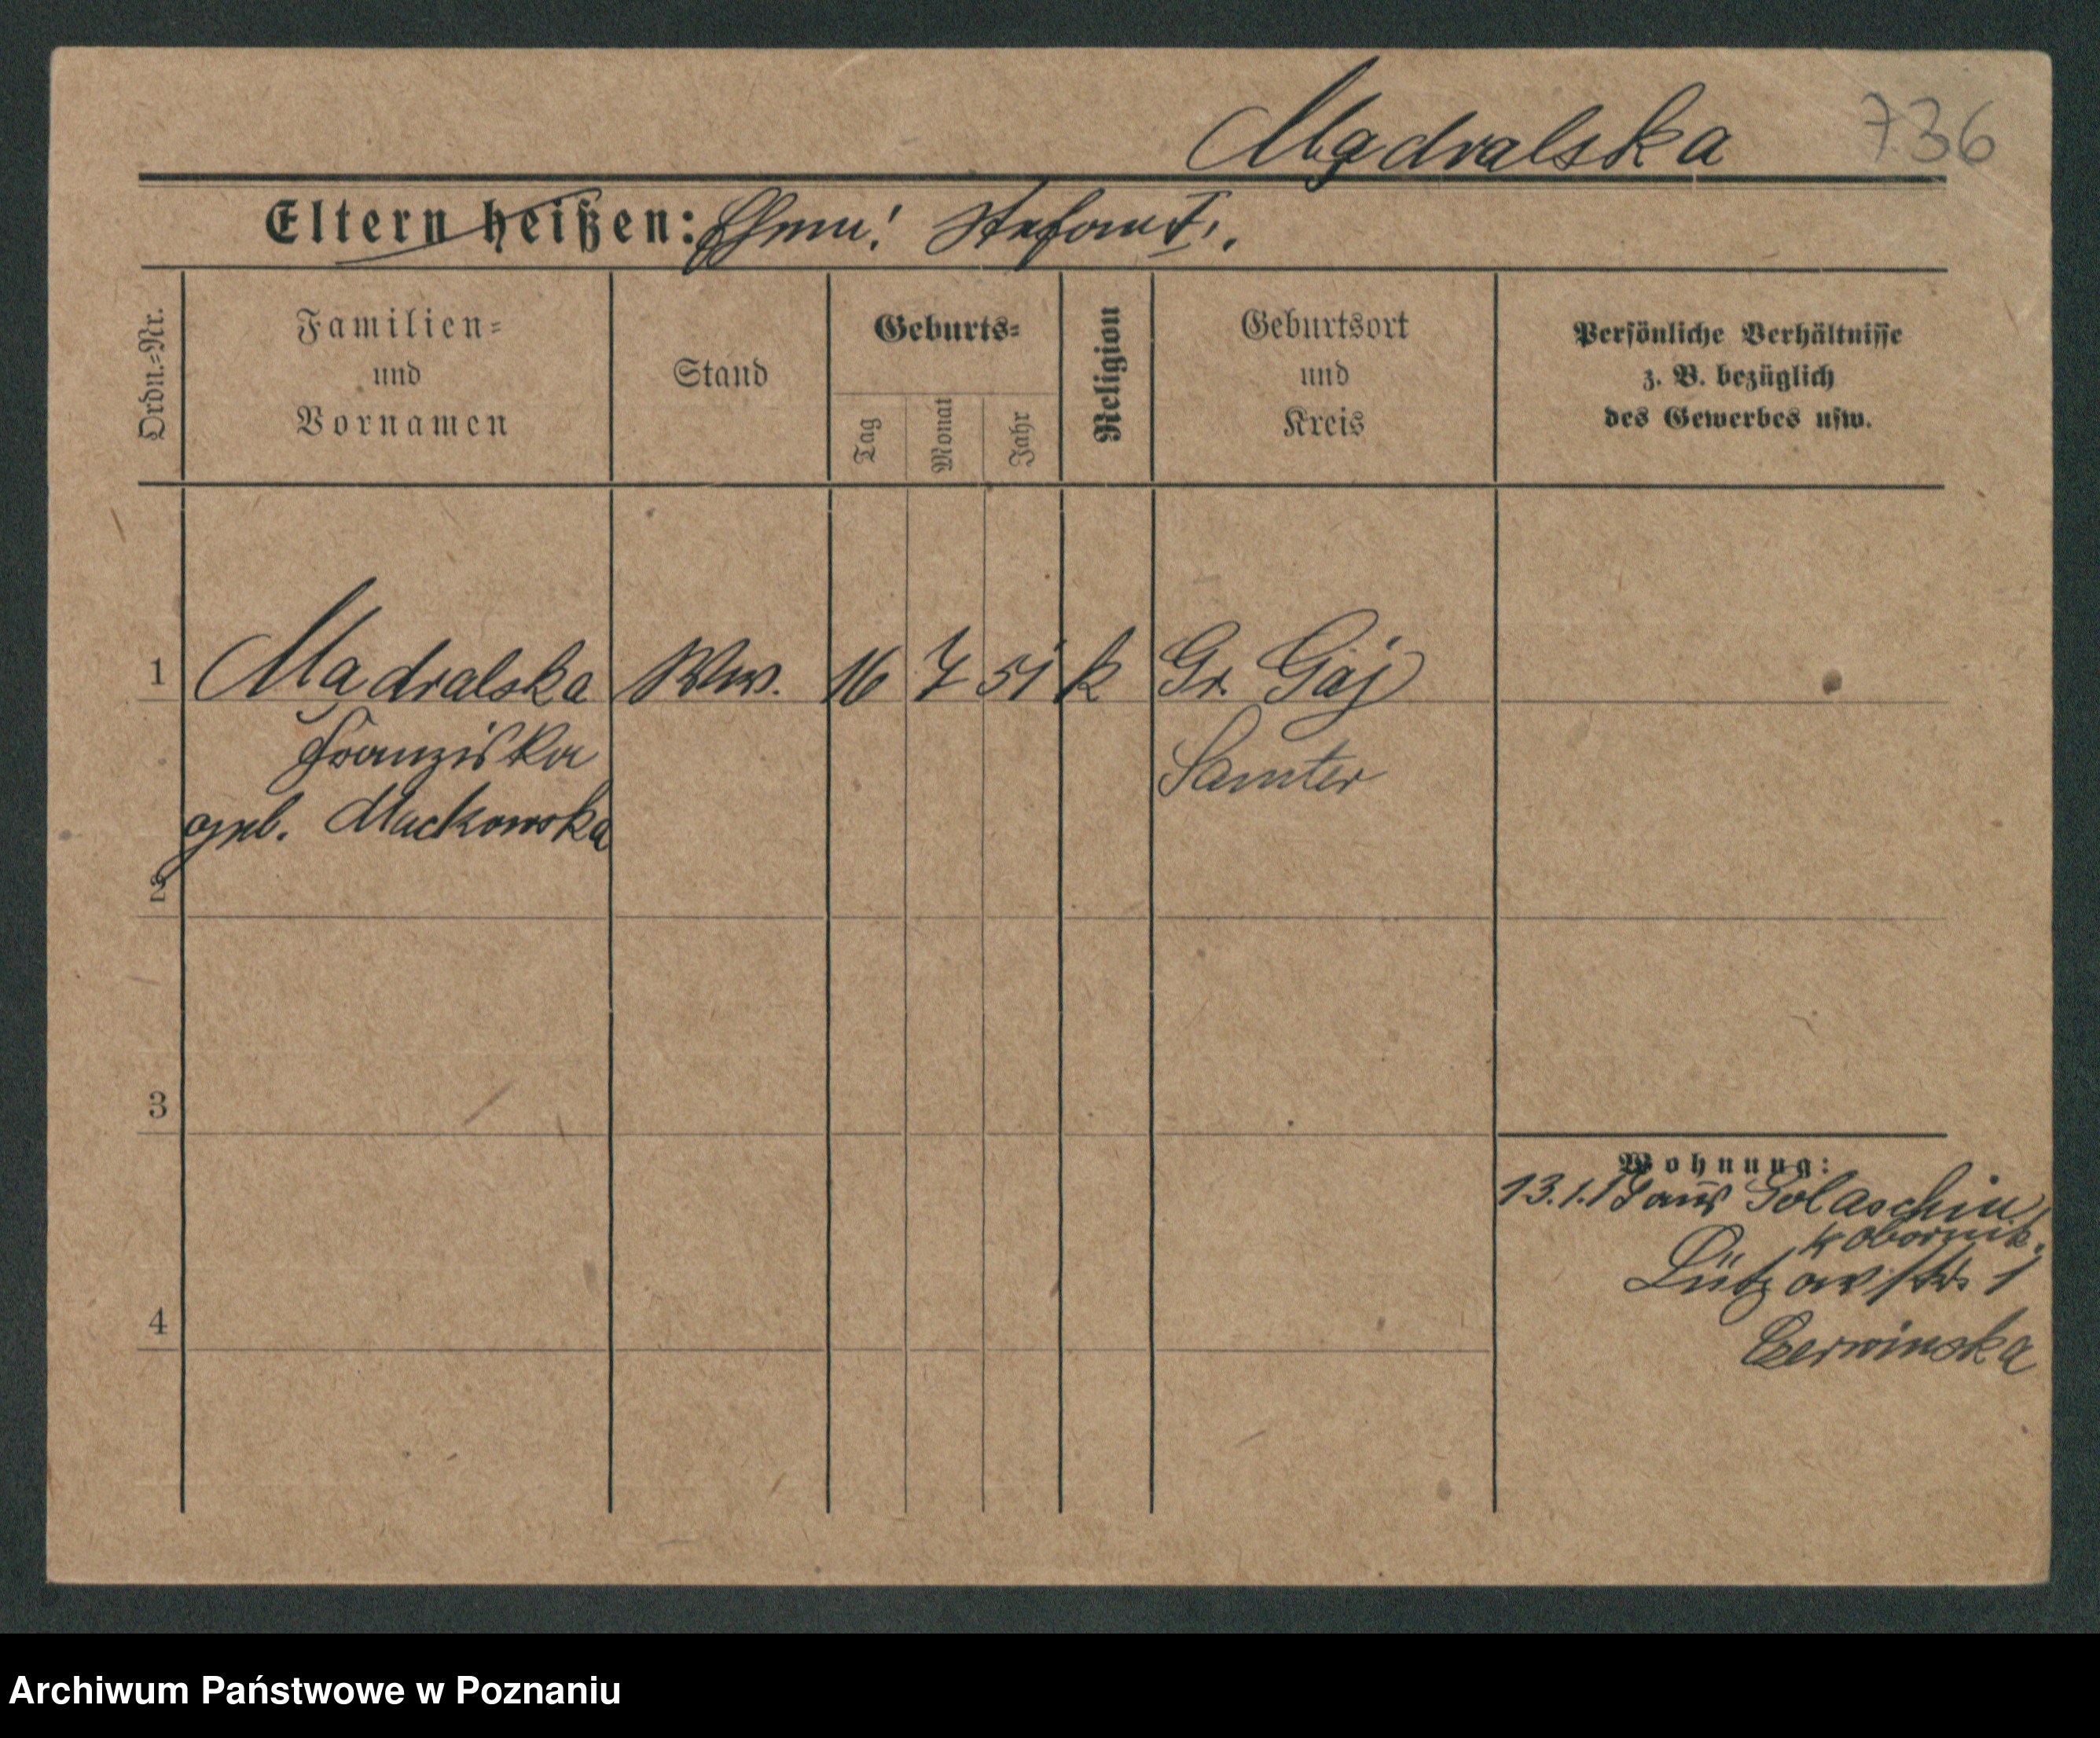 Mądralska 736
Eltern heißen: Ehem: Stefan †.
Ordn.-Nr.
Familien-
und
Vornamen
Stand
Geburts-
Tag
Monat
Jahr
Religion
Geburtsort
und
Kreis
Persönliche Verhältnisse
z. B. bezüglich
des Gewerbes usw.
1 Mądralska Ww. 16 7 51 k Gr. Gaj
Franziska Samter
geb. Mackowska
2
3
4
Wohnung:
13.1.19 aus Golaschin
Kr Obornik.
Lützowstr. 1
Cerwinska
Archiwum Państwowe w Poznaniu